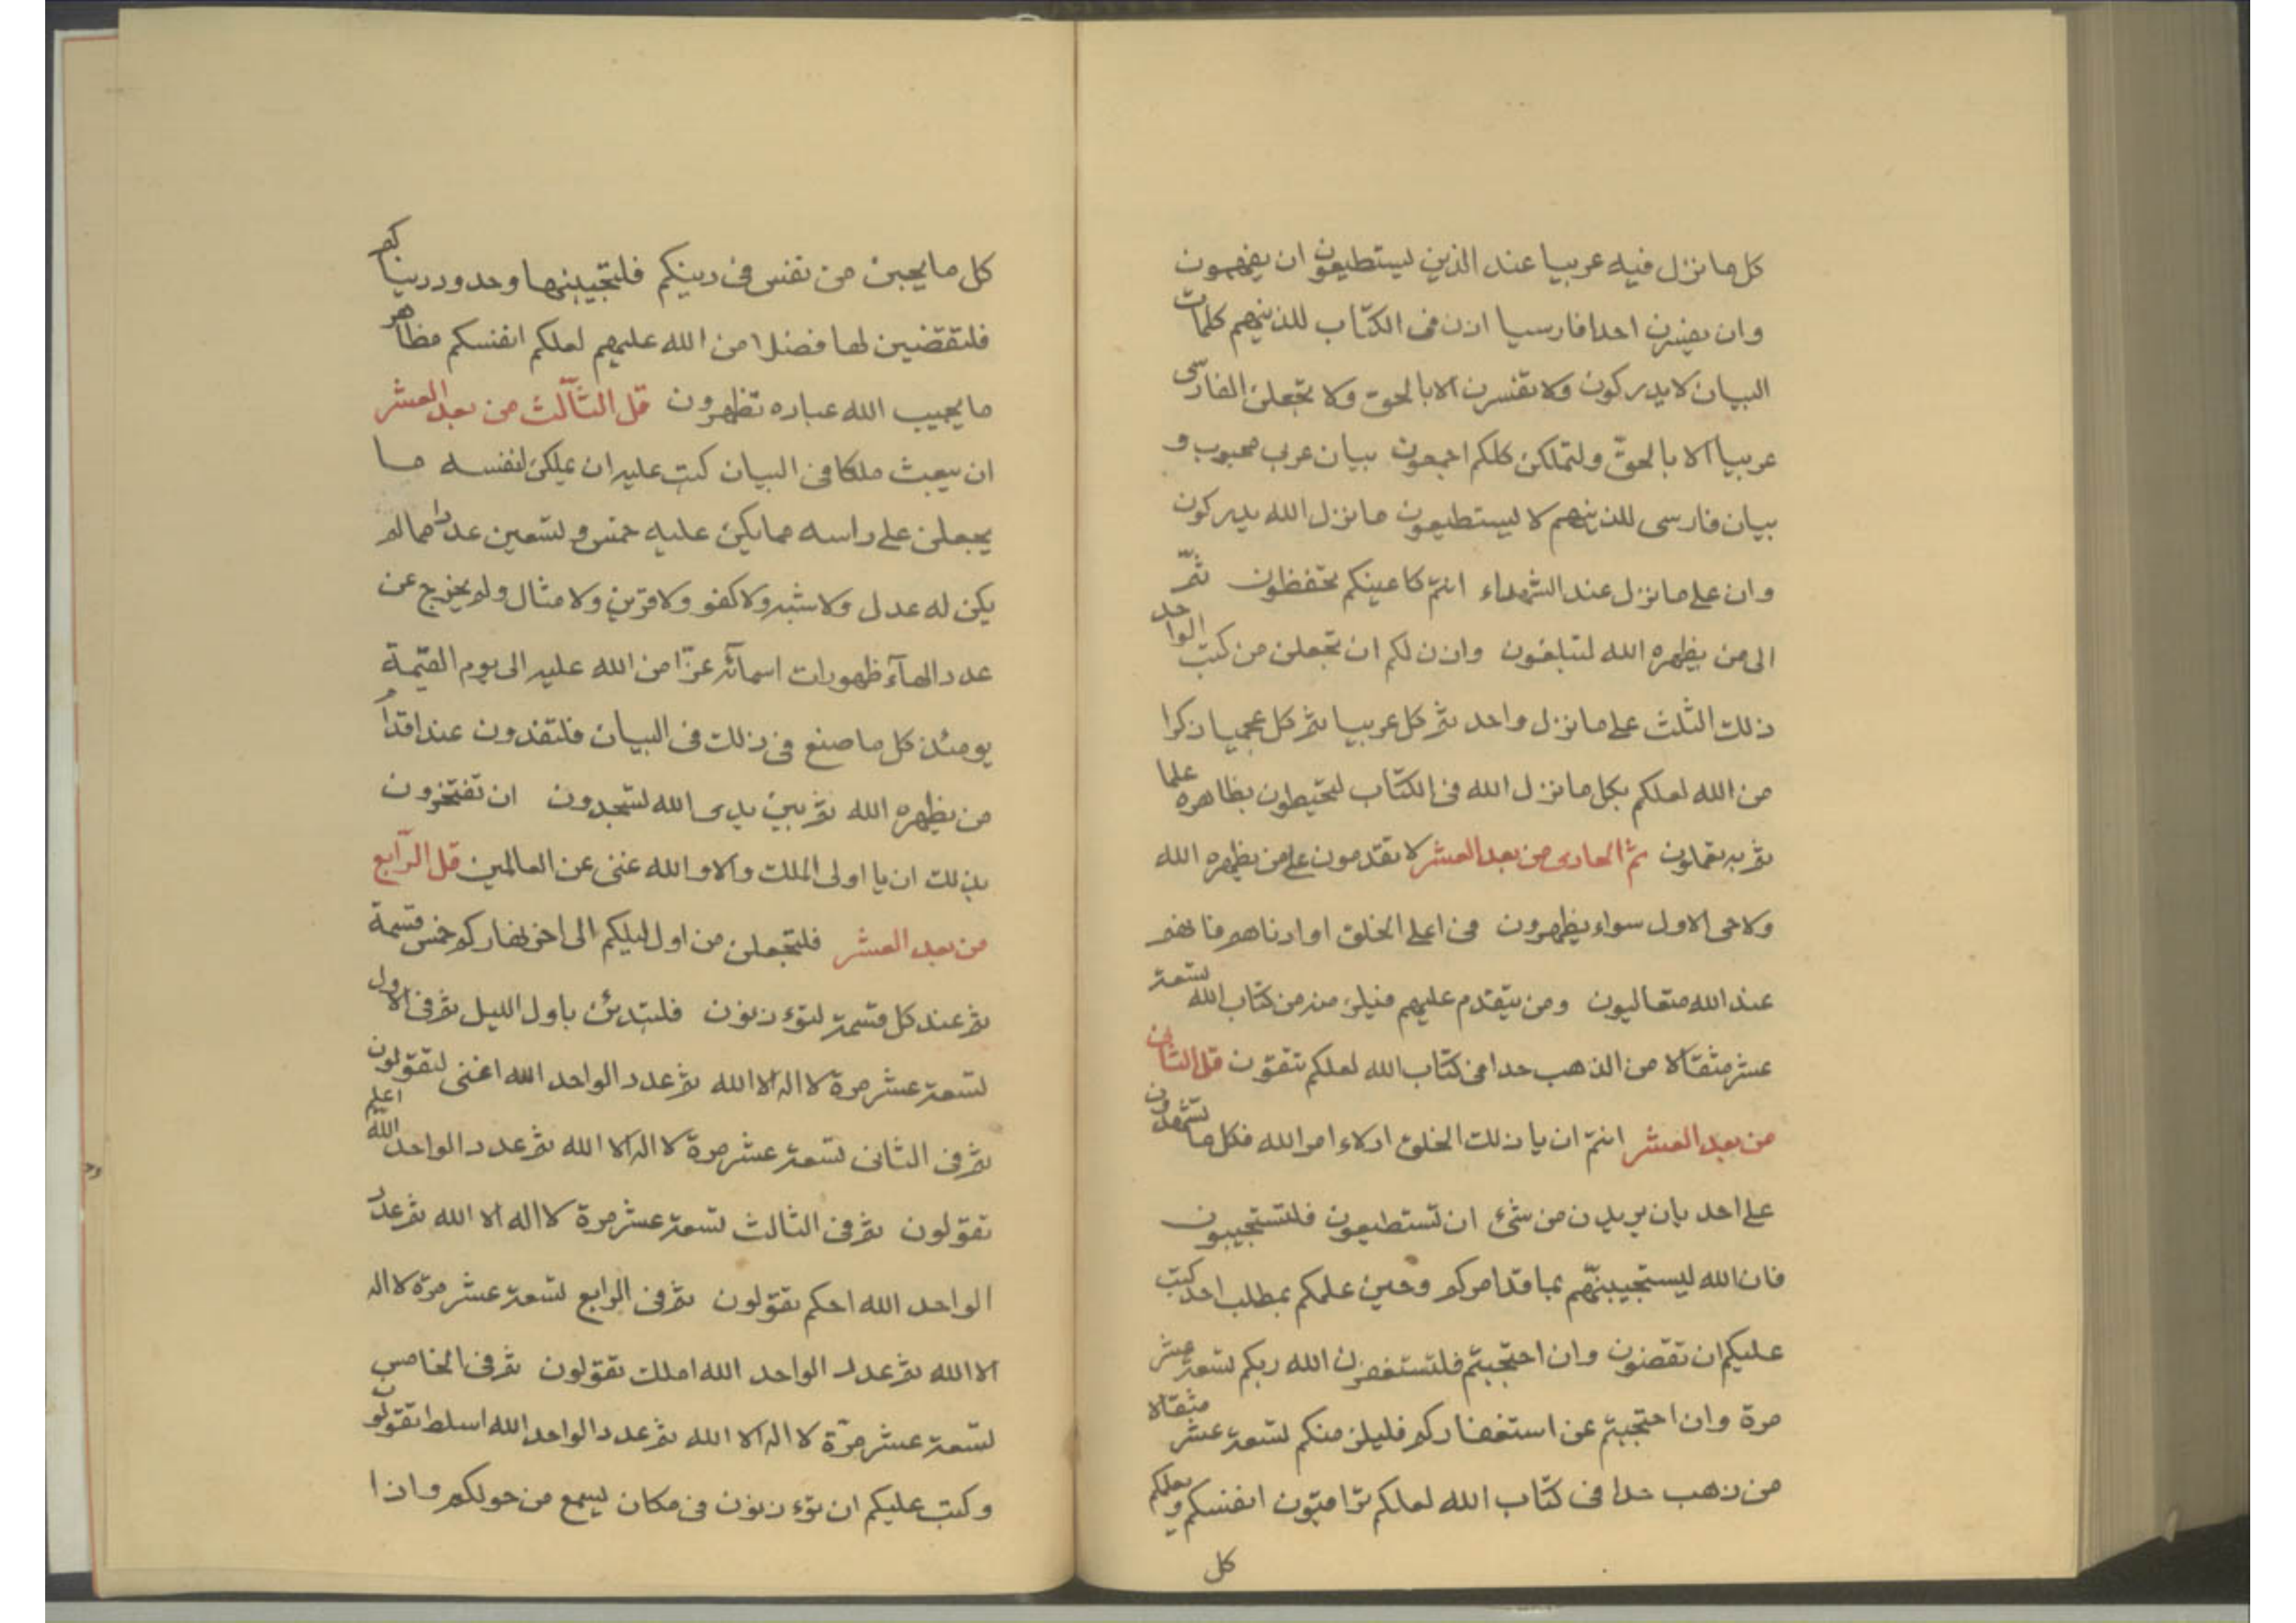 كل ما نزل فيه عربيا عند الذين ليستطيعون ان يفهمون
وان يفسرن احدا فارسيا اذن فى الكتاب للذينهم كلمات
البيان لا يدركون ولا تفسرن الا بالحق ولا تجعلن الفارسى
عربيا الا بالحق ولتملكن كلكم اجمعون بيان عرب محبوب و
بيان فارسى للذينهم لا يستطيعون ما نزل الله يدركون
وان على ما نزل عند الشهداء انتم كاعينكم تحفظون ثم
الى من يظهره الله لتبلغون واذن لكم ان تجعلن من كتب الواحد
ذلك الثلث على ما نزل واحد ثم كل عربيا ثم كل عجميا ذكرا
من الله لعلكم بكل ما نزل الله فى الكتاب لتحيطون بظاهره علما
ثم به تعملون ثم الحادى من بعد العشر لا تقدمون على من يظهره الله
ولا حى الاول سواء يظهرون فى اعلى الخلق او ادناهم فانهم
عند الله متعاليون ومن يتقدم عليهم فيلزمنه من كتاب الله تسعة
عشر مثقالا من الذهب حدا فى كتاب الله لعلكم تتقون قل الثانى
من بعد العشر انتم ان يا ذلك الخلق ادلاء امر الله فكل ما تشهدون
على احد بان يريدن من شئ ان تستطيعون فلتستجيبون
فان الله ليستجيبنهم بما قد امركم وحين علمكم بمطلب احد كتب
عليكم ان تقضون وان احتجبتم فلتستغفرن الله ربكم تسعة عشر
مرة وان احتجبتم عن استغفاركم فليلزمنكم تسعة عشر مثقالا
من ذهب حدا فى كتاب الله لعلكم تراقبون انفسكم و بعلكم
كل
كل ما يجبن من نفس فى دينكم فلتجيبنها وحدود دينكم
فلتقضين لها فضلا من الله عليهم لعلكم انفسكم مظاهر
ما يجيب الله عباده تظهرون قل الثالث من بعد العشر
ان يبعث ملكا فى البيان كتب عليه ان يملكن لنفسه ما
يجعلن على راسه مما يكن عليه خمس وتسعين عددا مما لم
يكن له عدل ولا شبه ولا كفو ولا قرين ولا مثال ولم يخرج عن
عدد الهاء ظهورات اسمائه عزا من الله عليه الى يوم القيمة
يومئذ كل ما صنع فى ذلك فى البيان فلتفدون عند اقدام
من يظهره الله ثم بين يدى الله لتسجدون ان تفتخرون
بذلك ان يا اولى الملك والا والله غنى عن العالمين قل الرابع
من بعد العشر فلتجعلن من اول ليلكم الى اخر نهاركم خمس قسمة
ثم عند كل قسمة لتؤذنون فلتبدئن باول الليل ثم فى الاول
تسعة عشر مرة لا اله الا الله ثم عدد الواحد الله اغنى لتقولون
ثم فى الثانى تسعة عشر مرة لا اله الا الله ثم عدد الواحد الله اعلم
تقولون ثم فى الثالث تسعة عشر مرة لا اله الا الله ثم عدد
الواحد الله احكم تقولون ثم فى الرابع تسعة عشر مرة لا اله
الا الله ثم عدد الواحد الله املك تقولون ثم فى الخامس
تسعة عشر مرة لا اله الا الله ثم عدد الواحد الله اسلط تقولون
وكتب عليكم ان تؤذنون فى مكان يسمع من حولكم واذا